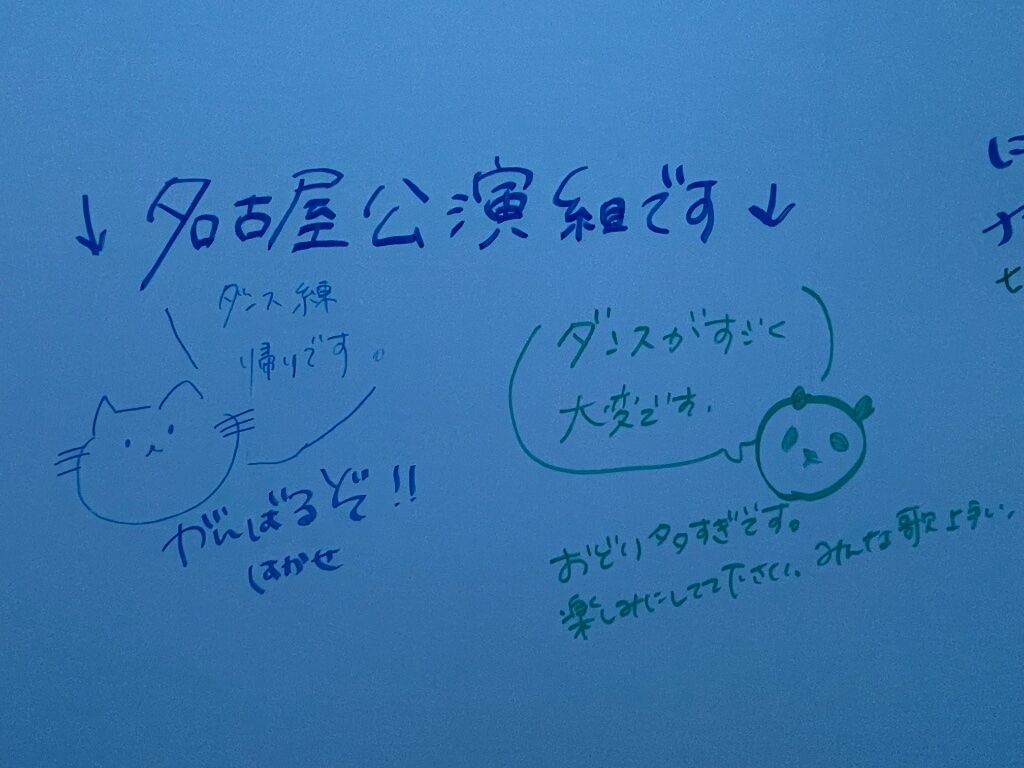 ↓名古屋公演組です↓
ダンス練
帰りです。
がんばるぞ!!
はかせ
ダンスがすごく
大変です.
おどり多すぎです。
楽しみにしてて下さい、みんな歌上手い、
に